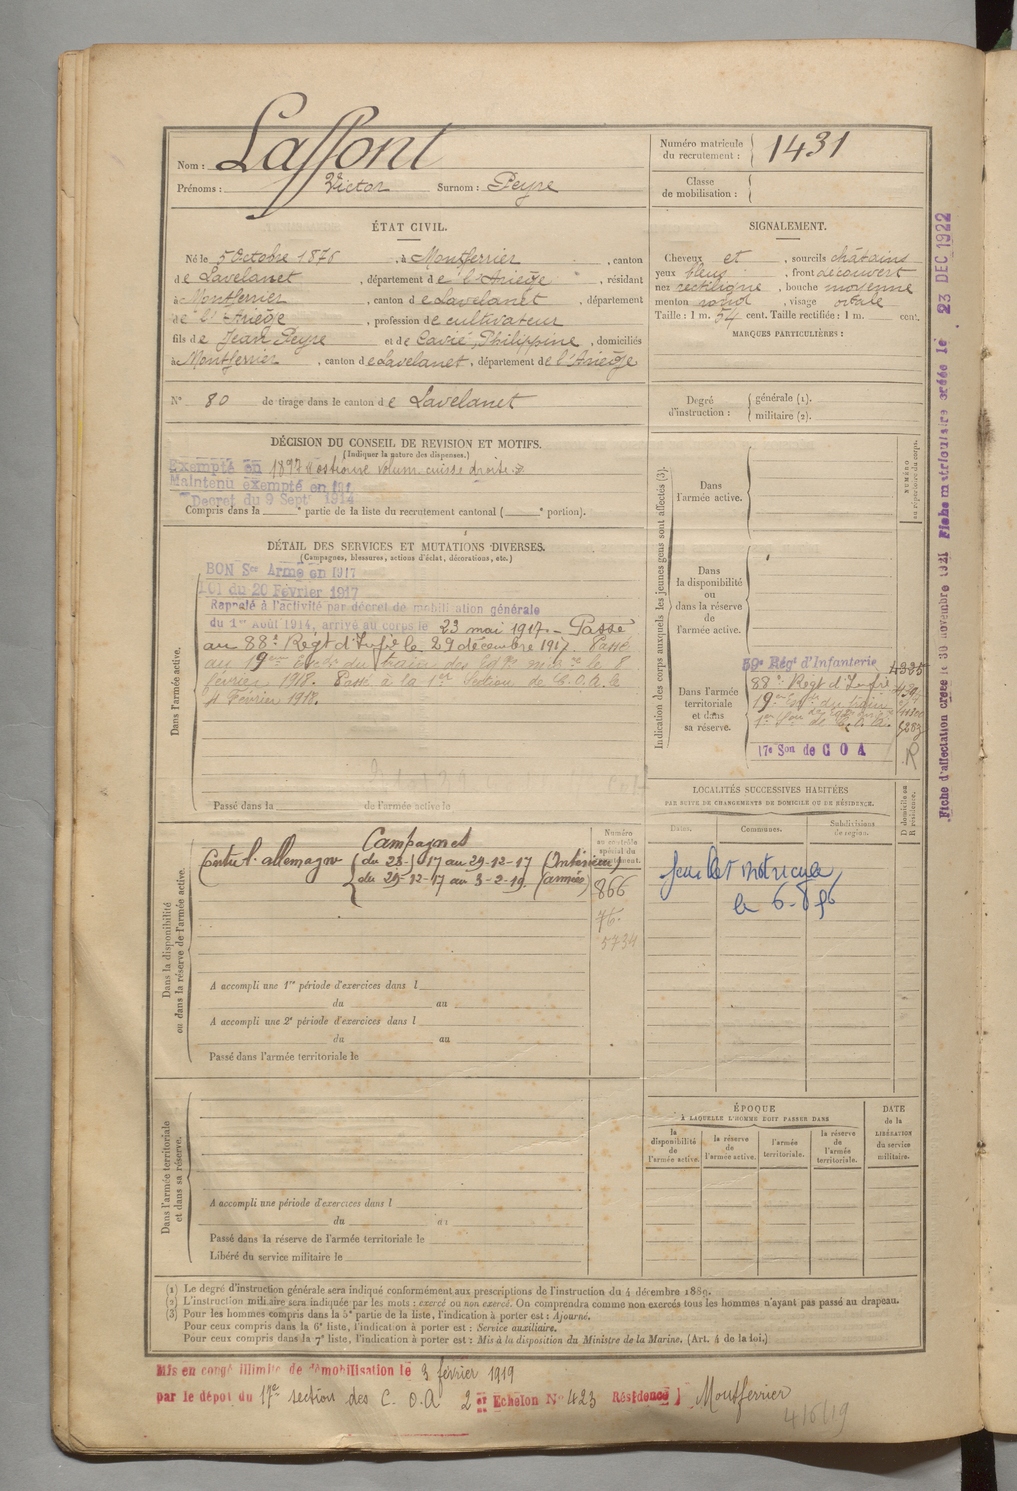 Nom : Laffont
Prénoms : Victor Surnom : Peyre
Numéro matricule du recrutement : 1431
Classe de mobilisation :
ÉTAT CIVIL.
Né le 5 Octobre 1876, à Montferrier, canton
de Lavelanet, département de l'Ariège, résidant
à Montferrier, canton de Lavelanet, département
de l'Ariège, profession de cultivateur
fils de Jean Peyre et de Cavié, Philippine, domiciliés
à Montferrier, canton de Lavelanet, département de l'Ariège
N° 80 de tirage dans le canton de Lavelanet
SIGNALEMENT.
Cheveux et, sourcils châtains
yeux bleus, front découvert
nez rectiligne, bouche moyenne
menton rond, visage ovale
Taille : 1 m. 54 cent. Taille rectifiée : 1 m. cent.
MARQUES PARTICULIÈRES :
Degré d'instruction : générale (1).
militaire (2).
DÉCISION DU CONSEIL DE REVISION ET MOTIFS.
(Indiquer la nature des dispenses.)
Exempté en 1897 ostéome volum. cuisse droite
Maintenu exempté en 191
Decret du 9 Sept 1914
Compris dans la e partie de la liste du recrutement cantonal ( e portion).
DÉTAIL DES SERVICES ET MUTATIONS DIVERSES.
(Campagnes, blessures, actions d'éclat, décorations, etc.)
BON Sce Armé en 1917
LOI du 20 Février 1917
Rappelé à l'activité par décret de mobilisation générale
du 1er Août 1914, arrivé au corps le 23 mai 1917. - Passé
au 88e Régt d'Infie le 29 décembre 1917. Passé
au 19e
le 8
février 1918. Passé à la 1re Section de C.O.A. le
Février 1918.
Dans l'armée active.
Passé dans la de l'armée active le
Indication des corps auxquels les jeunes gens sont affectés (3).
NUMÉRO au répertoire du corps.
Dans l'armée active.
Dans la disponibilité ou dans la réserve de l'armée active.
Dans l'armée territoriale et dans sa réserve.
59e Régt d'Infanterie
88e Régt d'Infie
17e Son de C O A
R
LOCALITÉS SUCCESSIVES HABITÉES
PAR SUITE DE CHANGEMENTS DE DOMICILE OU DE RÉSIDENCE.
Dates. Communes. Subdivisions de region. D domicile ou R résidence.
feuillet matricule
le 6-8
Numéro au contrôle spécial du recrutement.
866
76.
5734
Campagnes
Contre l'allemagne du 23- 17 au 29-12-17 (Intérieur)
du 29-12-17 au 3-2-19 (armées)
Dans la disponibilité ou dans la réserve de l'armée active.
A accompli une 1re période d'exercices dans l
du au
A accompli une 2e période d'exercices dans l
du au
Passé dans l'armée territoriale le
ÉPOQUE
À LAQUELLE L'HOMME DOIT PASSER DANS
la disponibilité de l'armée active. la réserve de l'armée active. l'armée territoriale. la réserve de l'armée territoriale.
DATE de la LIBÉRATION du service militaire.
Dans l'armée territoriale et dans sa réserve.
A accompli une période d'exercices dans l
du au
Passé dans la réserve de l'armée territoriale le
Libéré du service militaire le
(1) Le degré d'instruction générale sera indiqué conformément aux prescriptions de l'instruction du 4 décembre 1889.
(2) L'instruction militaire sera indiquée par les mots : exercé ou non exercé. On comprendra comme non exercés tous les hommes n'ayant pas passé au drapeau.
(3) Pour les hommes compris dans la 5e partie de la liste, l'indication à porter est : Ajourné.
Pour ceux compris dans la 6e liste, l'indication à porter est : Service auxiliaire.
Pour ceux compris dans la 7e liste, l'indication à porter est : Mis à la disposition du Ministre de la Marine. (Art. 4 de la loi.)
Mis en congé illimité de démobilisation le 3 février 1919
par le dépot du 17e section des C.O.A 2e Echelon N° 423 Résidence Montferrier
Fiche d'affectation créée le 30 novembre 1921 Fiche matriculaire créée le 23 DEC 1922